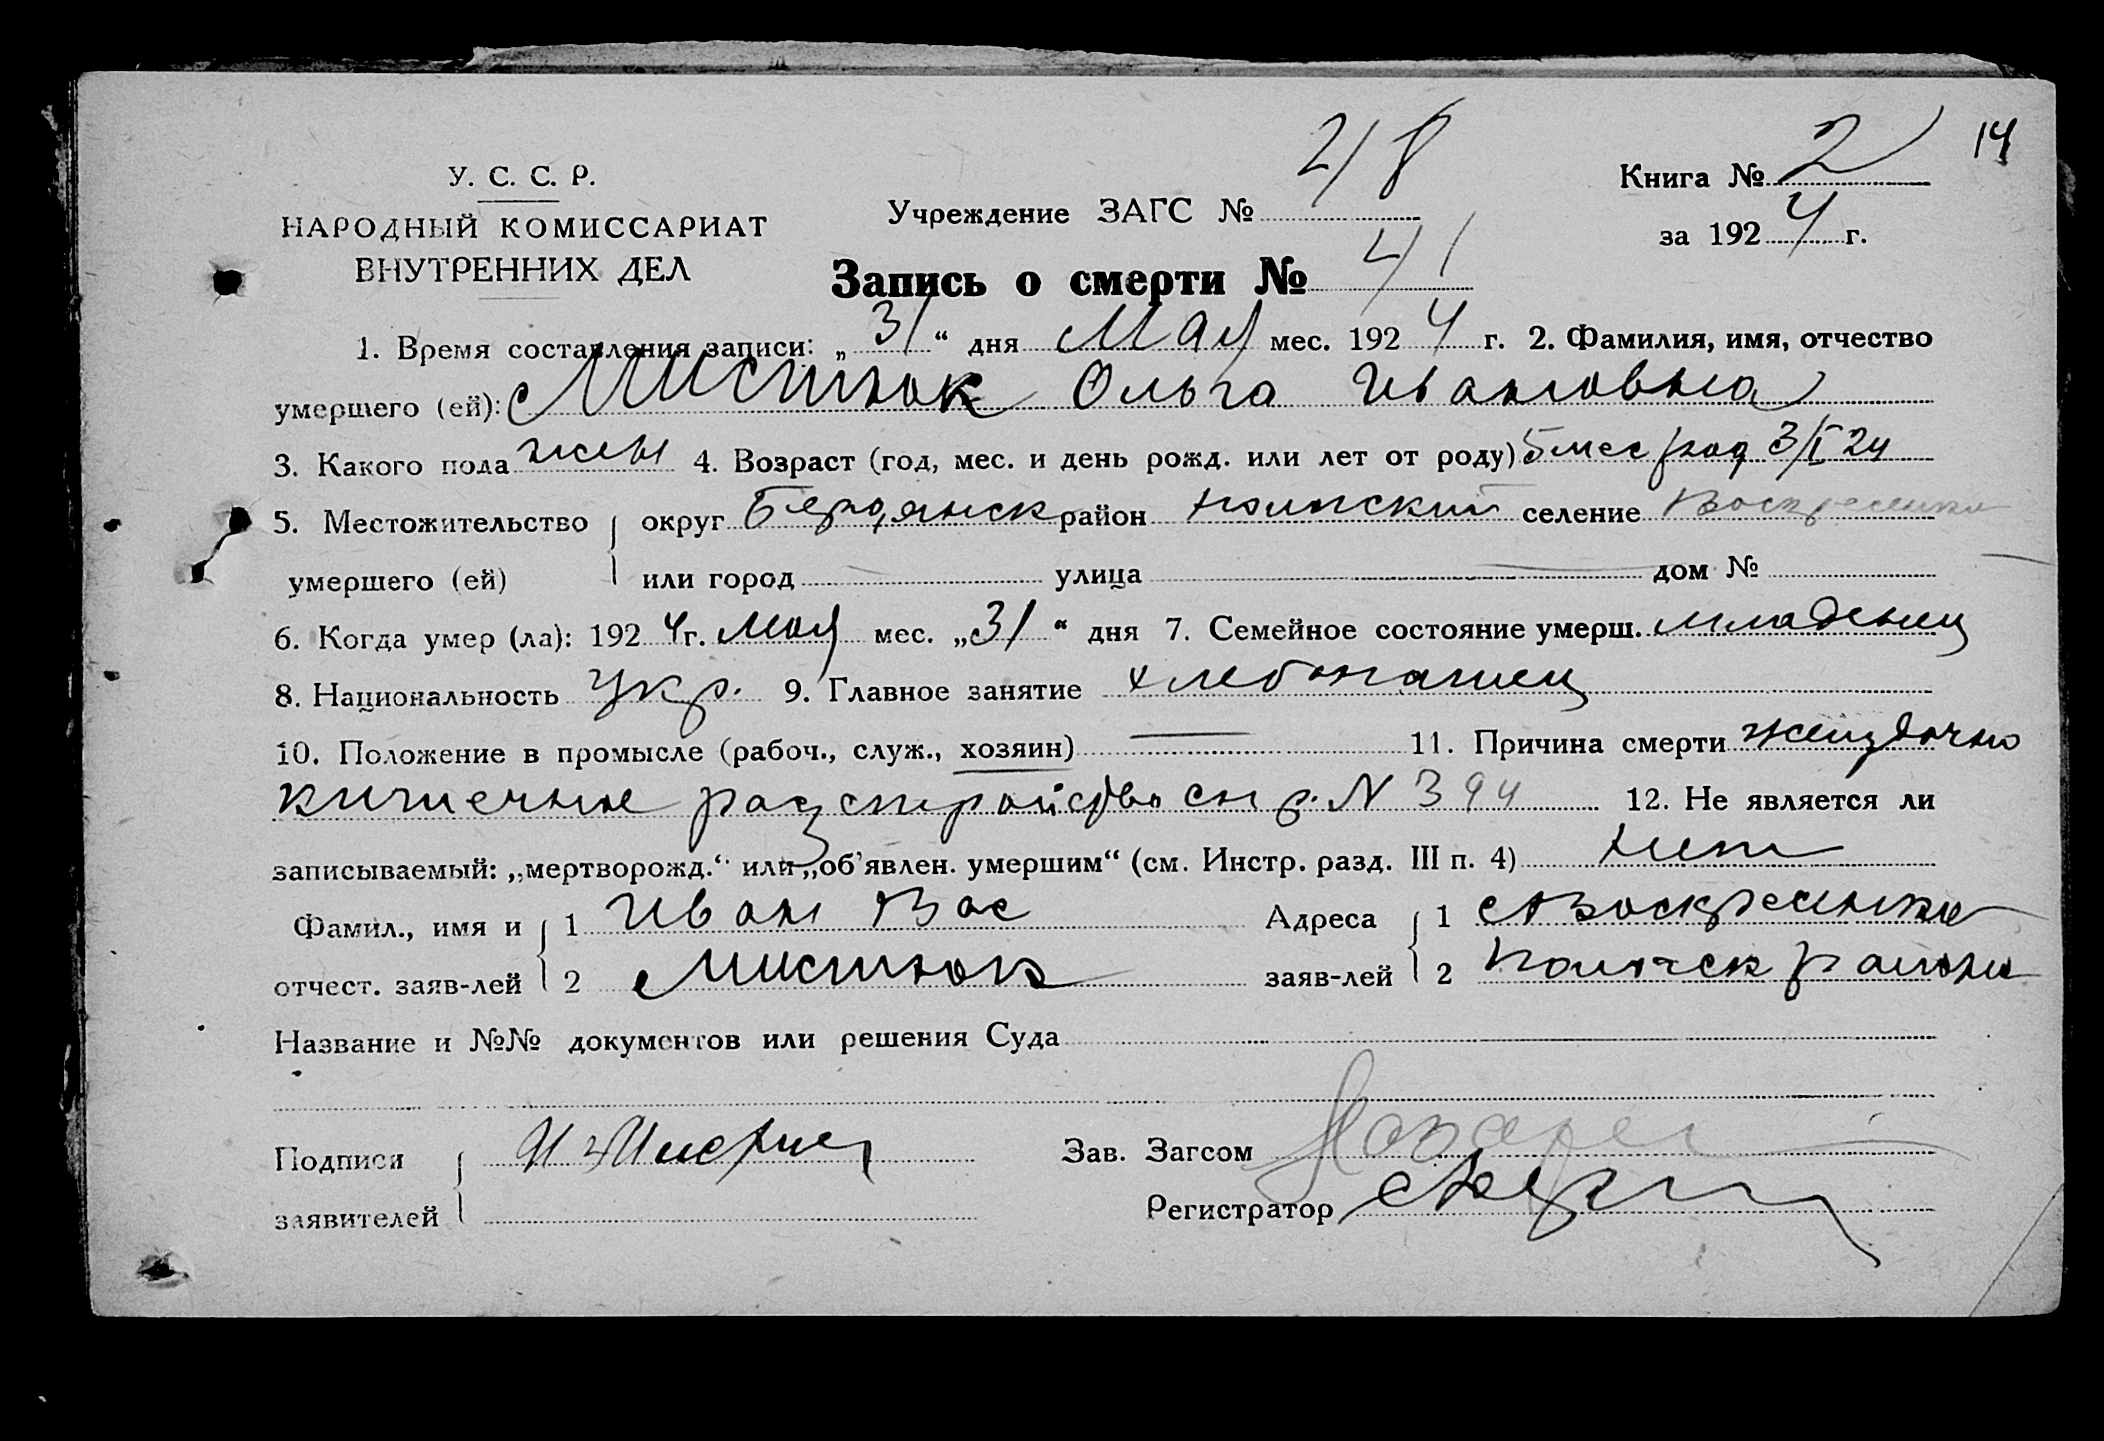 14
У. С. С. Р.
НАРОДНЫЙ КОМИССАРИАТ
ВНУТРЕННИХ ДЕЛ
Учреждение ЗАГС № 218
Книга № 2
за 1924 г.
Запись о смерти № 41
1. Время составления записи: „31“ дня Мая мес. 1924 г. 2. Фамилия, имя, отчество
умершего (ей): Мистюк Ольга Ивановна
3. Какого пола жен 4. Возраст (год, мес. и день рожд. или лет от роду) 5 мес род 3/I 24
5. Местожительство округ Бердянск район селение Воскресенка
умершего (ей) или город улица дом №
6. Когда умер (ла): 1924 г. Мая мес. „31“ дня 7. Семейное состояние умерш. младенец
8. Национальность Укр. 9. Главное занятие хлебопашец
10. Положение в промысле (рабоч., служ., хозяин) 11. Причина смерти
расстройство сп р. N 394 12. Не является ли
записываемый: „мертворожд.“ или „об'явлен. умершим“ (см. Инстр. разд. III п. 4) нет
Фамил., имя и 1 Иван Вас Адреса 1 с Воскресенка
отчест. заяв-лей 2 Мистюк заяв-лей 2 района
Название и №№ документов или решения Суда
Подписи Зав. Загсом
заявителей Регистратор